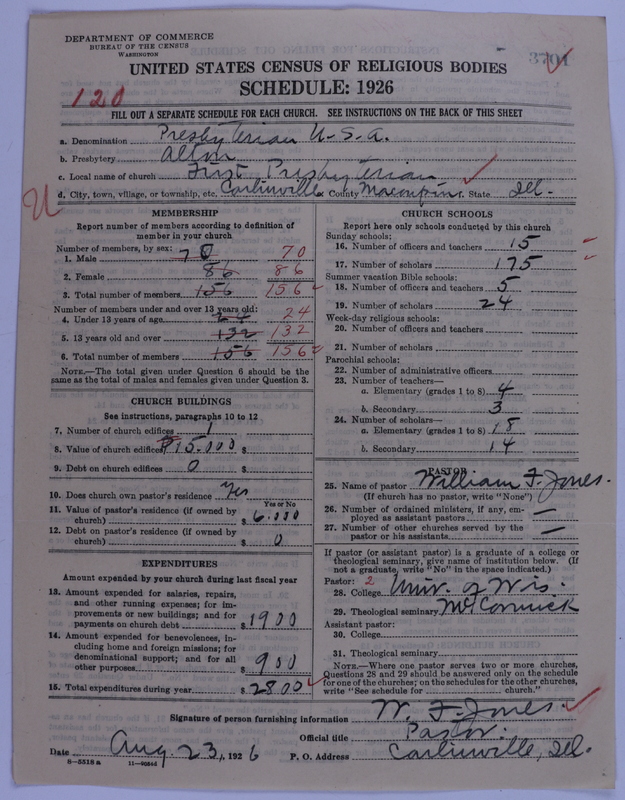 DEPARTMENT OF COMMERCE
BUREAU OF THE CENSUS
WASHINGTON
3701
UNITED STATES CENSUS OF RELIGIOUS BODIES
SCHEDULE: 1926
120
FILL OUT A SEPARATE SCHEDULE FOR EACH CHURCH. SEE INSTRUCTIONS ON THE BACK OF THIS SHEET
a. Denomination Presbyterian U.S.A.
b. Presbytery Alton
c. Local name of church First Presbyterian
d. City, town, village, or township, etc. Carlinville County Macoupin f. State Ill.
MEMBERSHIP
Report number of members according to definition of
member in your church
Number of members, by sex:
1. Male 70 70
2. Female 86 86
3. Total number of members 156 156
Number of members under and over 13 years old:
4. Under 13 years of age 24 24
5. 13 years old and over 132 132
6. Total number of members 156 156
NOTE.—The total given under Question 6 should be the
same as the total of males and females given under Question 3.
CHURCH BUILDINGS
See instructions, paragraphs 10 to 12
7. Number of church edifices 1
8. Value of church edifices $15.000 $
9. Debt on church edifices 0 $
10. Does church own pastor's residence Yes
Yes or No
11. Value of pastor's residence (if owned by
church) $ 6.000
12. Debt on pastor's residence (if owned by
church) $ 0
EXPENDITURES
Amount expended by your church during last fiscal year
13. Amount expended for salaries, repairs,
and other running expenses; for im-
provements or new buildings; and for
payments on church debt $ 1900
14. Amount expended for benevolences, in-
cluding home and foreign missions; for
denominational support; and for all
other purposes $ 900
15. Total expenditures during year $ 2800
CHURCH SCHOOLS
Report here only schools conducted by this church
Sunday schools:
16. Number of officers and teachers 15
17. Number of scholars 175
Summer vacation Bible schools:
18. Number of officers and teachers 5
19. Number of scholars 24
Week-day religious schools:
20. Number of officers and teachers
21. Number of scholars
Parochial schools:
22. Number of administrative officers
23. Number of teachers—
a. Elementary (grades 1 to 8) 4
b. Secondary 3
24. Number of scholars—
a. Elementary (grades 1 to 8) 18
b. Secondary 14
PASTOR
25. Name of pastor William F. Jones.
(If church has no pastor, write "None")
26. Number of ordained ministers, if any, em-
ployed as assistant pastors —
27. Number of other churches served by the
pastor or his assistants —
If pastor (or assistant pastor) is a graduate of a college or
theological seminary, give name of institution below. (If
not a graduate, write "No" in the space indicated.)
Pastor: 2
28. College Univ. of Wis.
29. Theological seminary McCormick
Assistant pastor:
30. College
31. Theological seminary
NOTE.—Where one pastor serves two or more churches,
Questions 28 and 29 should be answered only on the schedule
for one of the churches; on the schedules for the other churches,
write "See schedule for church."
Signature of person furnishing information W. F. Jones.
Official title Pastor.
Date Aug. 23, 1926 P. O. Address Carlinville, Ill.
8—5518 a